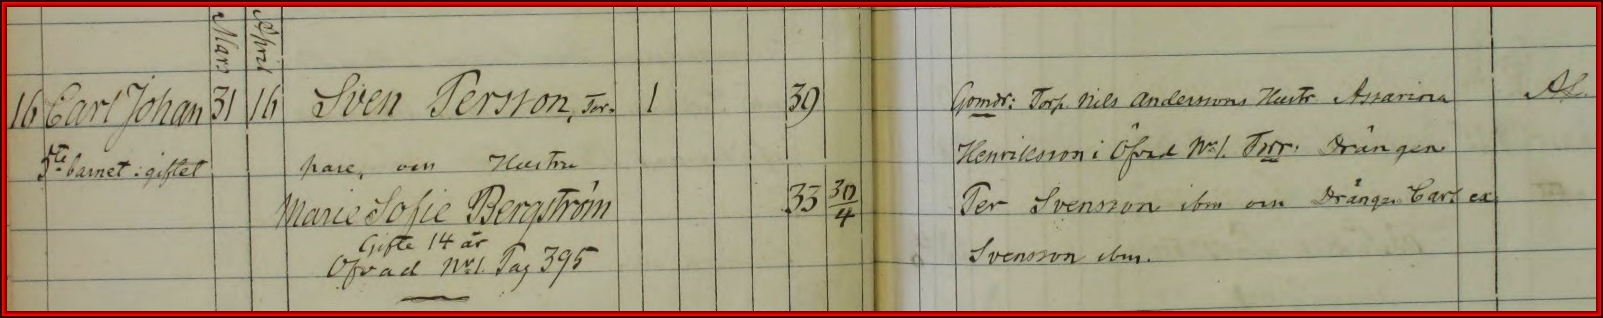 Mars April
16 Carl Johan 31 16 Sven Persson, Tor- 1 39 Gomor: Torp. Nils Anderssons Hustr
5te barnet i giftet pare, o Hustru Henriksson i Öfrad No 1. Drängen
Marie Sofie Bergström 33 30/4 Per Svensson ibm o Drängen Carl
Gifte 14 år
Öfrad No 1. Pag 395 Svensson ibm.